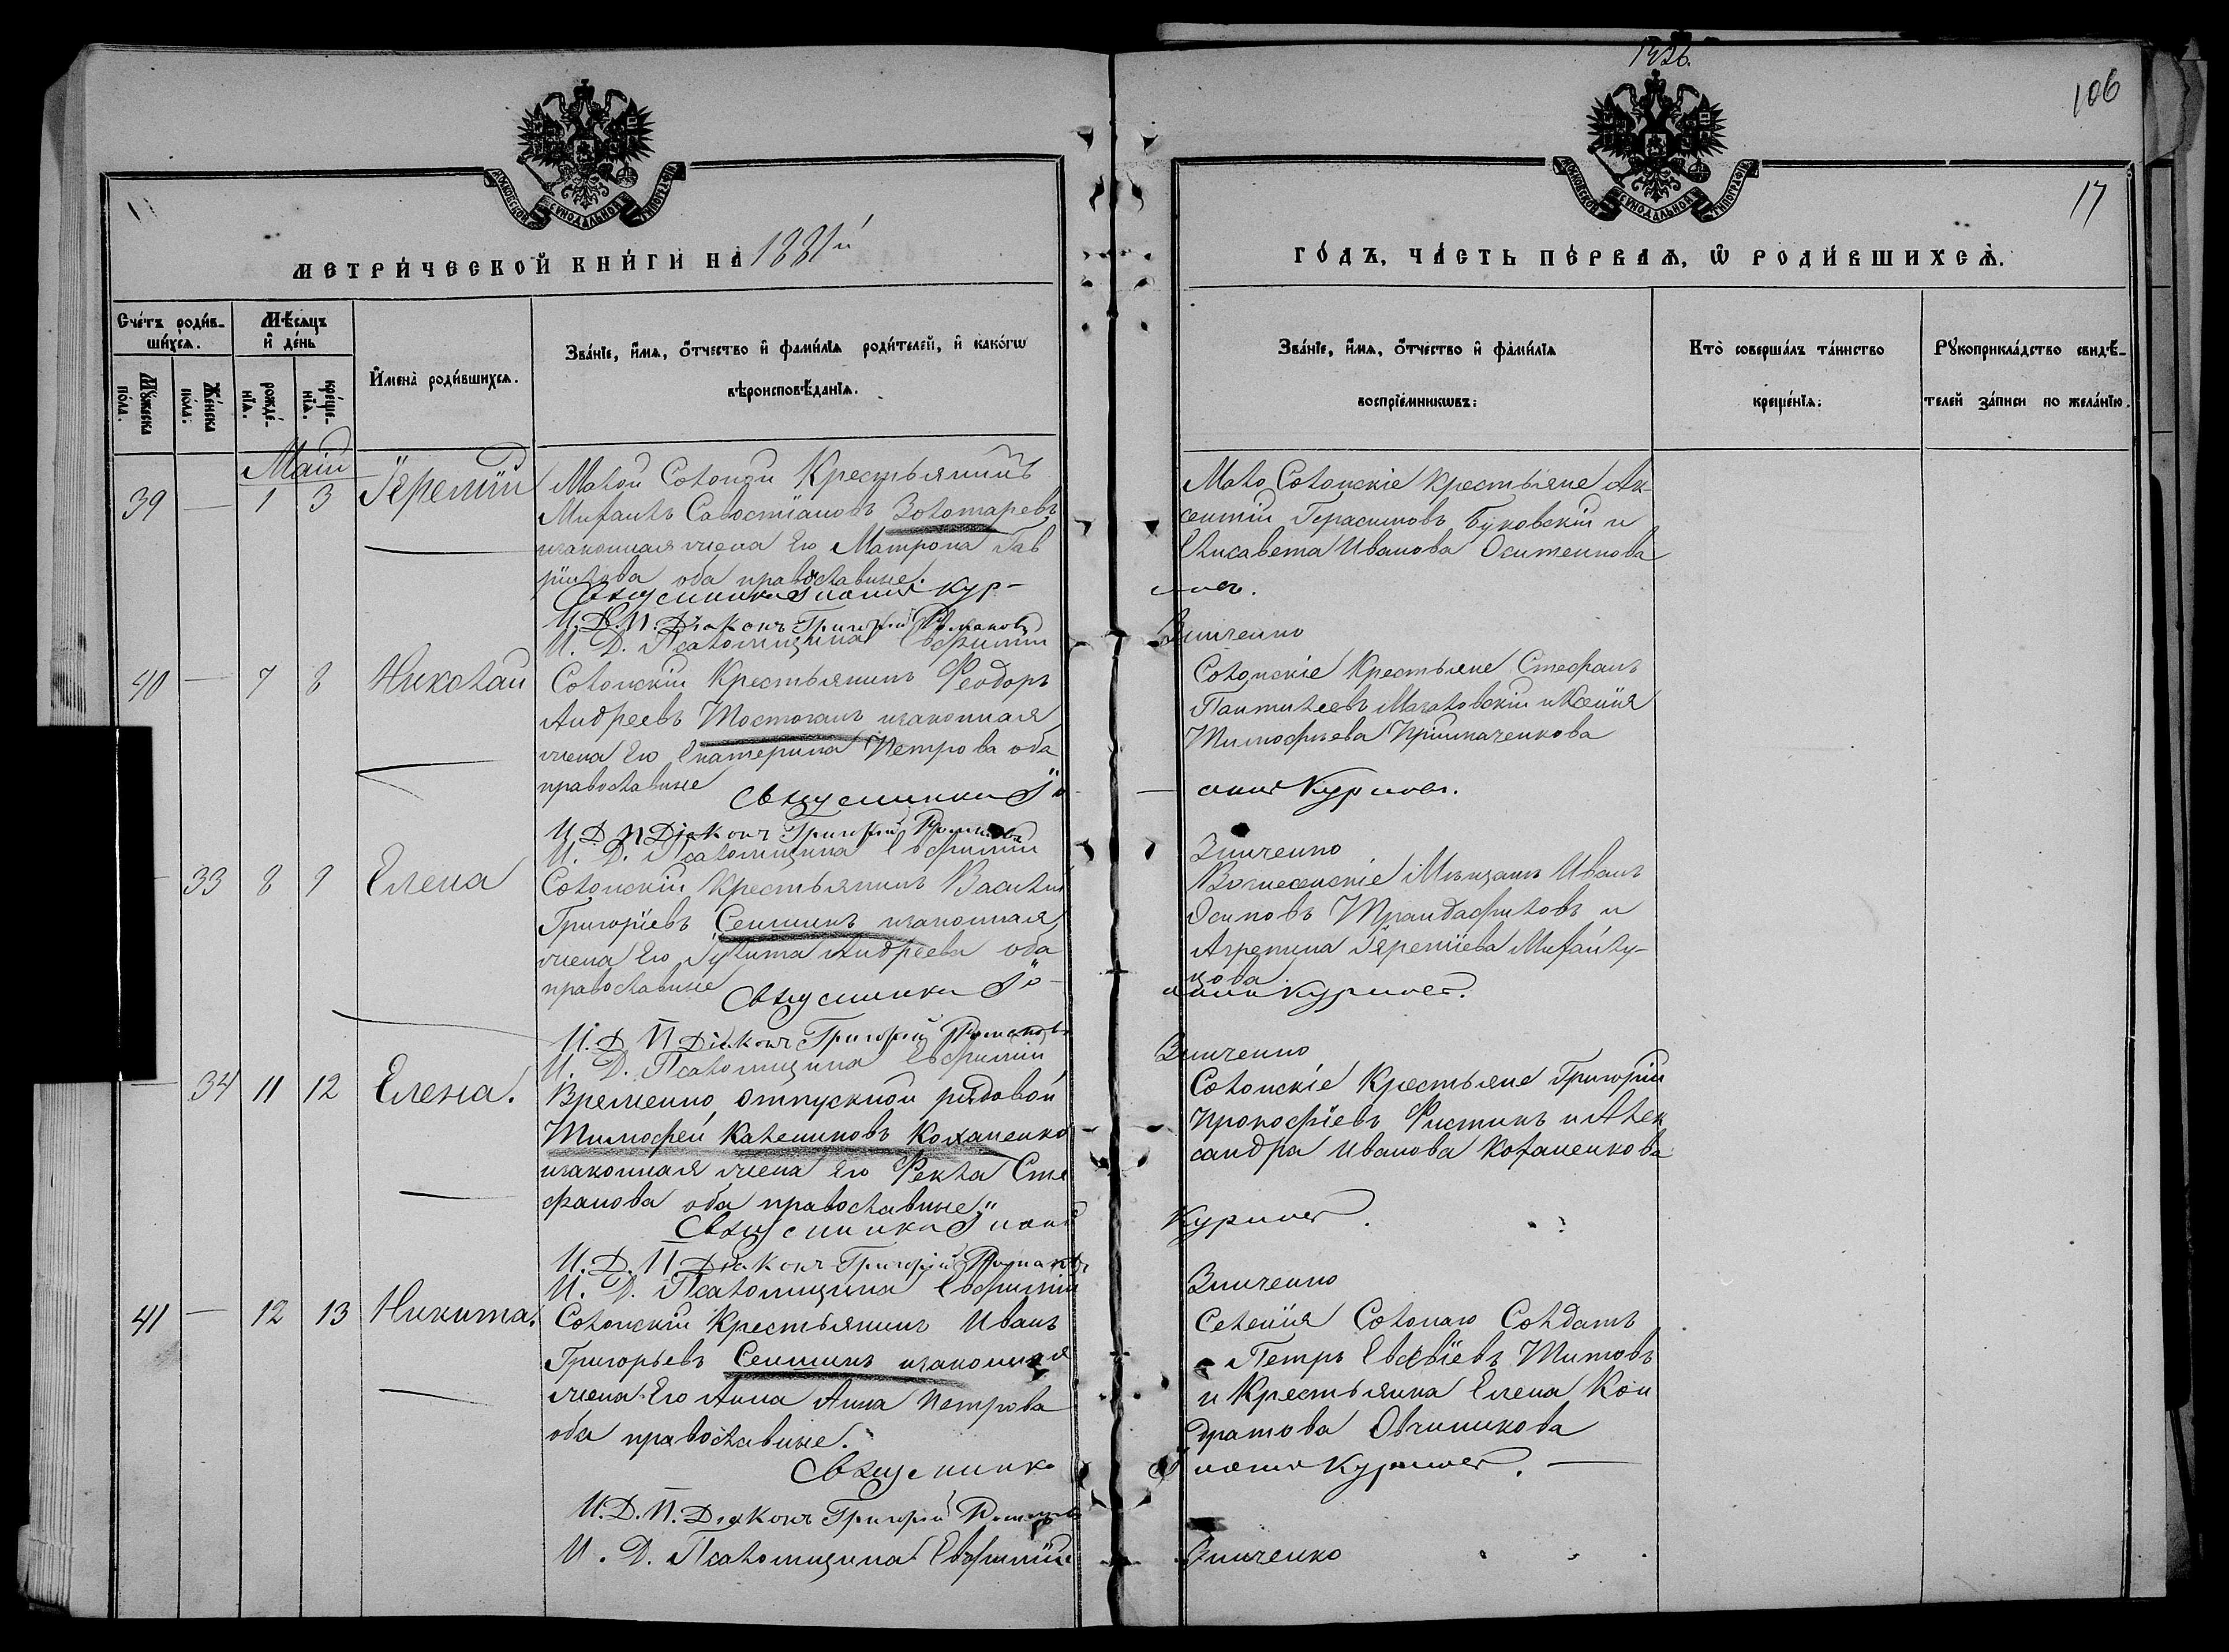 1326.
106
17
МОСКОВСКОЙ СѴНОДАЛЬНОЙ ТИПОГРАФІИ
МОСКОВСКОЙ СѴНОДАЛЬНОЙ ТИПОГРАФІИ
МЕТРИ́ЧЕСКОЙ КНИ́ГИ НА 1881й
ГО́ДЪ, ЧА́СТЬ ПЕ́РВАѦ, Ѿ РОДИ́ВШИХСѦ.
Сче́тъ роди́в-
ши́хсѧ.
Мѣ́сѧцъ
и҆ де́нь
Мꙋ́жеска
по́ла.
Же́нска
по́ла.
рожде́-
нїѧ.
креще́-
нїѧ.
И҆мена̀ роди́вшихсѧ.
Зва́нїе, и҆́мѧ, ѻ҆́тчество и҆ фами́лїѧ роди́телей, и҆ како́гѡ
вѣроисповѣ́данїѧ.
Зва́нїе, и҆́мѧ, ѻ҆́тчество и҆ фами́лїѧ
воспрїе́мникѡвъ:
Кто̀ соверша́лъ та́инство
креще́нїѧ:
Рꙋкоприкла́дство свидѣ́-
телей за́писи по жела́нїю.
Маій
39 — 1 3 Іеремій
Малой Солонои Крестьянинъ
Михаилъ Савостіановъ Золотаревъ
изаконная жена Его Матрона Гав
ріилова оба православные.
Мало Солонскіе крестьяне Ак-
сентій Герасимовъ Буковскій и
Елисавета Иванова Оситенкова
Священникъ Іоаннъ Кур-
И.Д.П. Діаконъ Григорій Романовъ
И. Д. Псаломщика Евфимій
Зинченко
40 — 7 8 Николай
Солонскій Крестьянинъ Феодоръ
Андреевъ Шостоканъ изаконная
жена Его Екатерина Петрова оба
православные
Солонскіе Крестьяне Стефанъ
Пантилеевъ Магаловскій и Ксенія
Тимофѣева Приймаченкова
Священникъ Іо
И Д П Діаконъ Григорій Романовъ
И. Д. Псаломщика Евфимій
Зинченко
— 33 8 9 Елена
Солонскій Крестьянинъ Василій
Григоріевъ Сенишинъ изаконная
жена Его Іулита Андреева оба
православные
Вознесенскіе Мѣщане Иванъ
Осиповъ Трандафиловъ и
Агрепина Іереміева Михайлу-
цова
Священникъ Іо-
И. Д П Діаконъ Григорій Романовъ
И. Д. Псаломщика Евфимій
Зинченко
— 34 11 12 Елена.
Временно отпускной рядовой
Тимофей Калениковъ Коханенко
изаконная жена Его Фекла Сте
фанова оба православные."
Солонскіе Крестьяне Григорій
Прокофіевъ Фистикъ и Алек
сандра Иванова Коханенкова
Священникъ Іоан
И. Д. П Діаконъ Григорій Романовъ
И. Д. Псаломщика Евфимій
Зинченко
41 — 12 13 Никита.
Солонскій Крестьянинъ Иванъ
Григорьевъ Сенишинъ изаконная
жена Его Анна Анна Петрова
оба православные.
Селенія Солонаго Солдатъ
Петръ Евсѣвіевъ Титовъ
и Крестьянка Елена Кон
дратова Овчиникова
Священникъ
И.Д.П. Діаконъ Григорій
И. Д. Псаломщика Евфимій
Зинченко